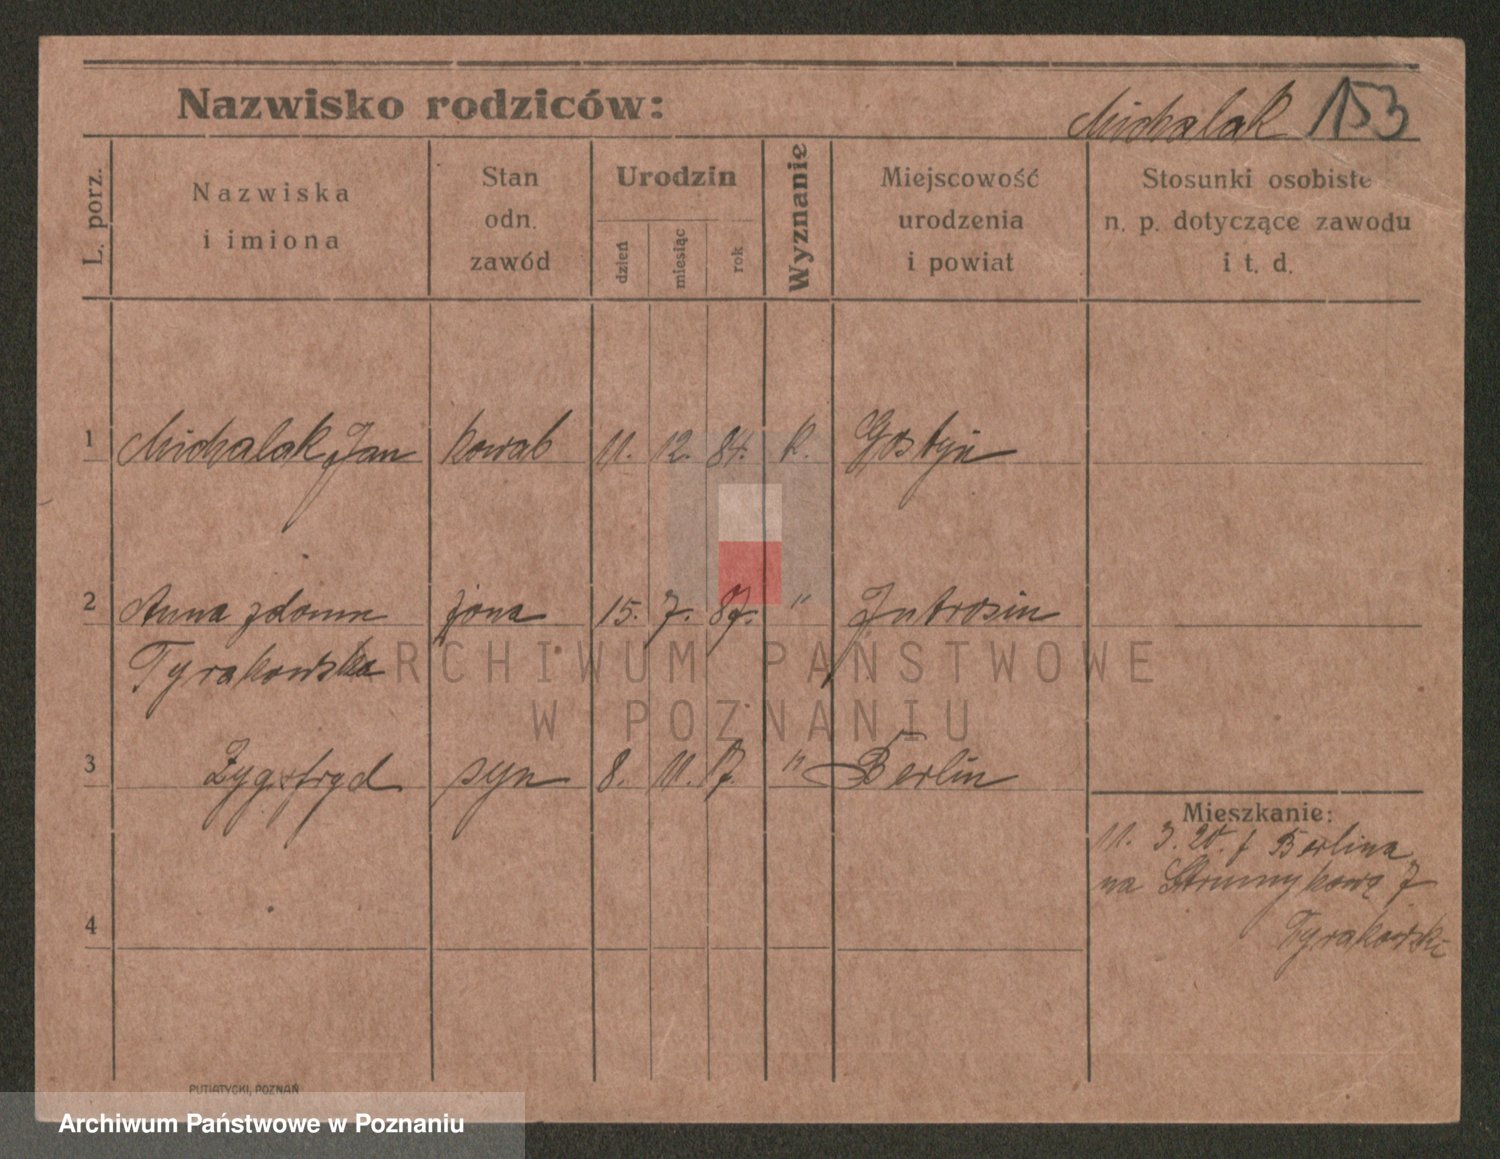 Nazwisko rodziców: Michalak 153
L. porz.
Nazwiska i imiona
Stan odn. zawód
Urodzin
dzień
miesiąc
rok
Wyznanie
Miejscowość urodzenia i powiat
Stosunki osobiste n. p. dotyczące zawodu i t. d.
1 Michalak Jan kowal 11. 12. 84. k. Gostyń
2 Anna z domu żona 15. 7. 87. " Jutrosin
Tyrakowska
3 Zygfryd syn 8. 11. 17. " Berlin
4
Mieszkanie:
11. 3. 20. z Berlina
na Strumykową 7
Tyrakowski
PUTIATYCKI, POZNAŃ
ARCHIWUM PAŃSTWOWE
W POZNANIU
Archiwum Państwowe w Poznaniu